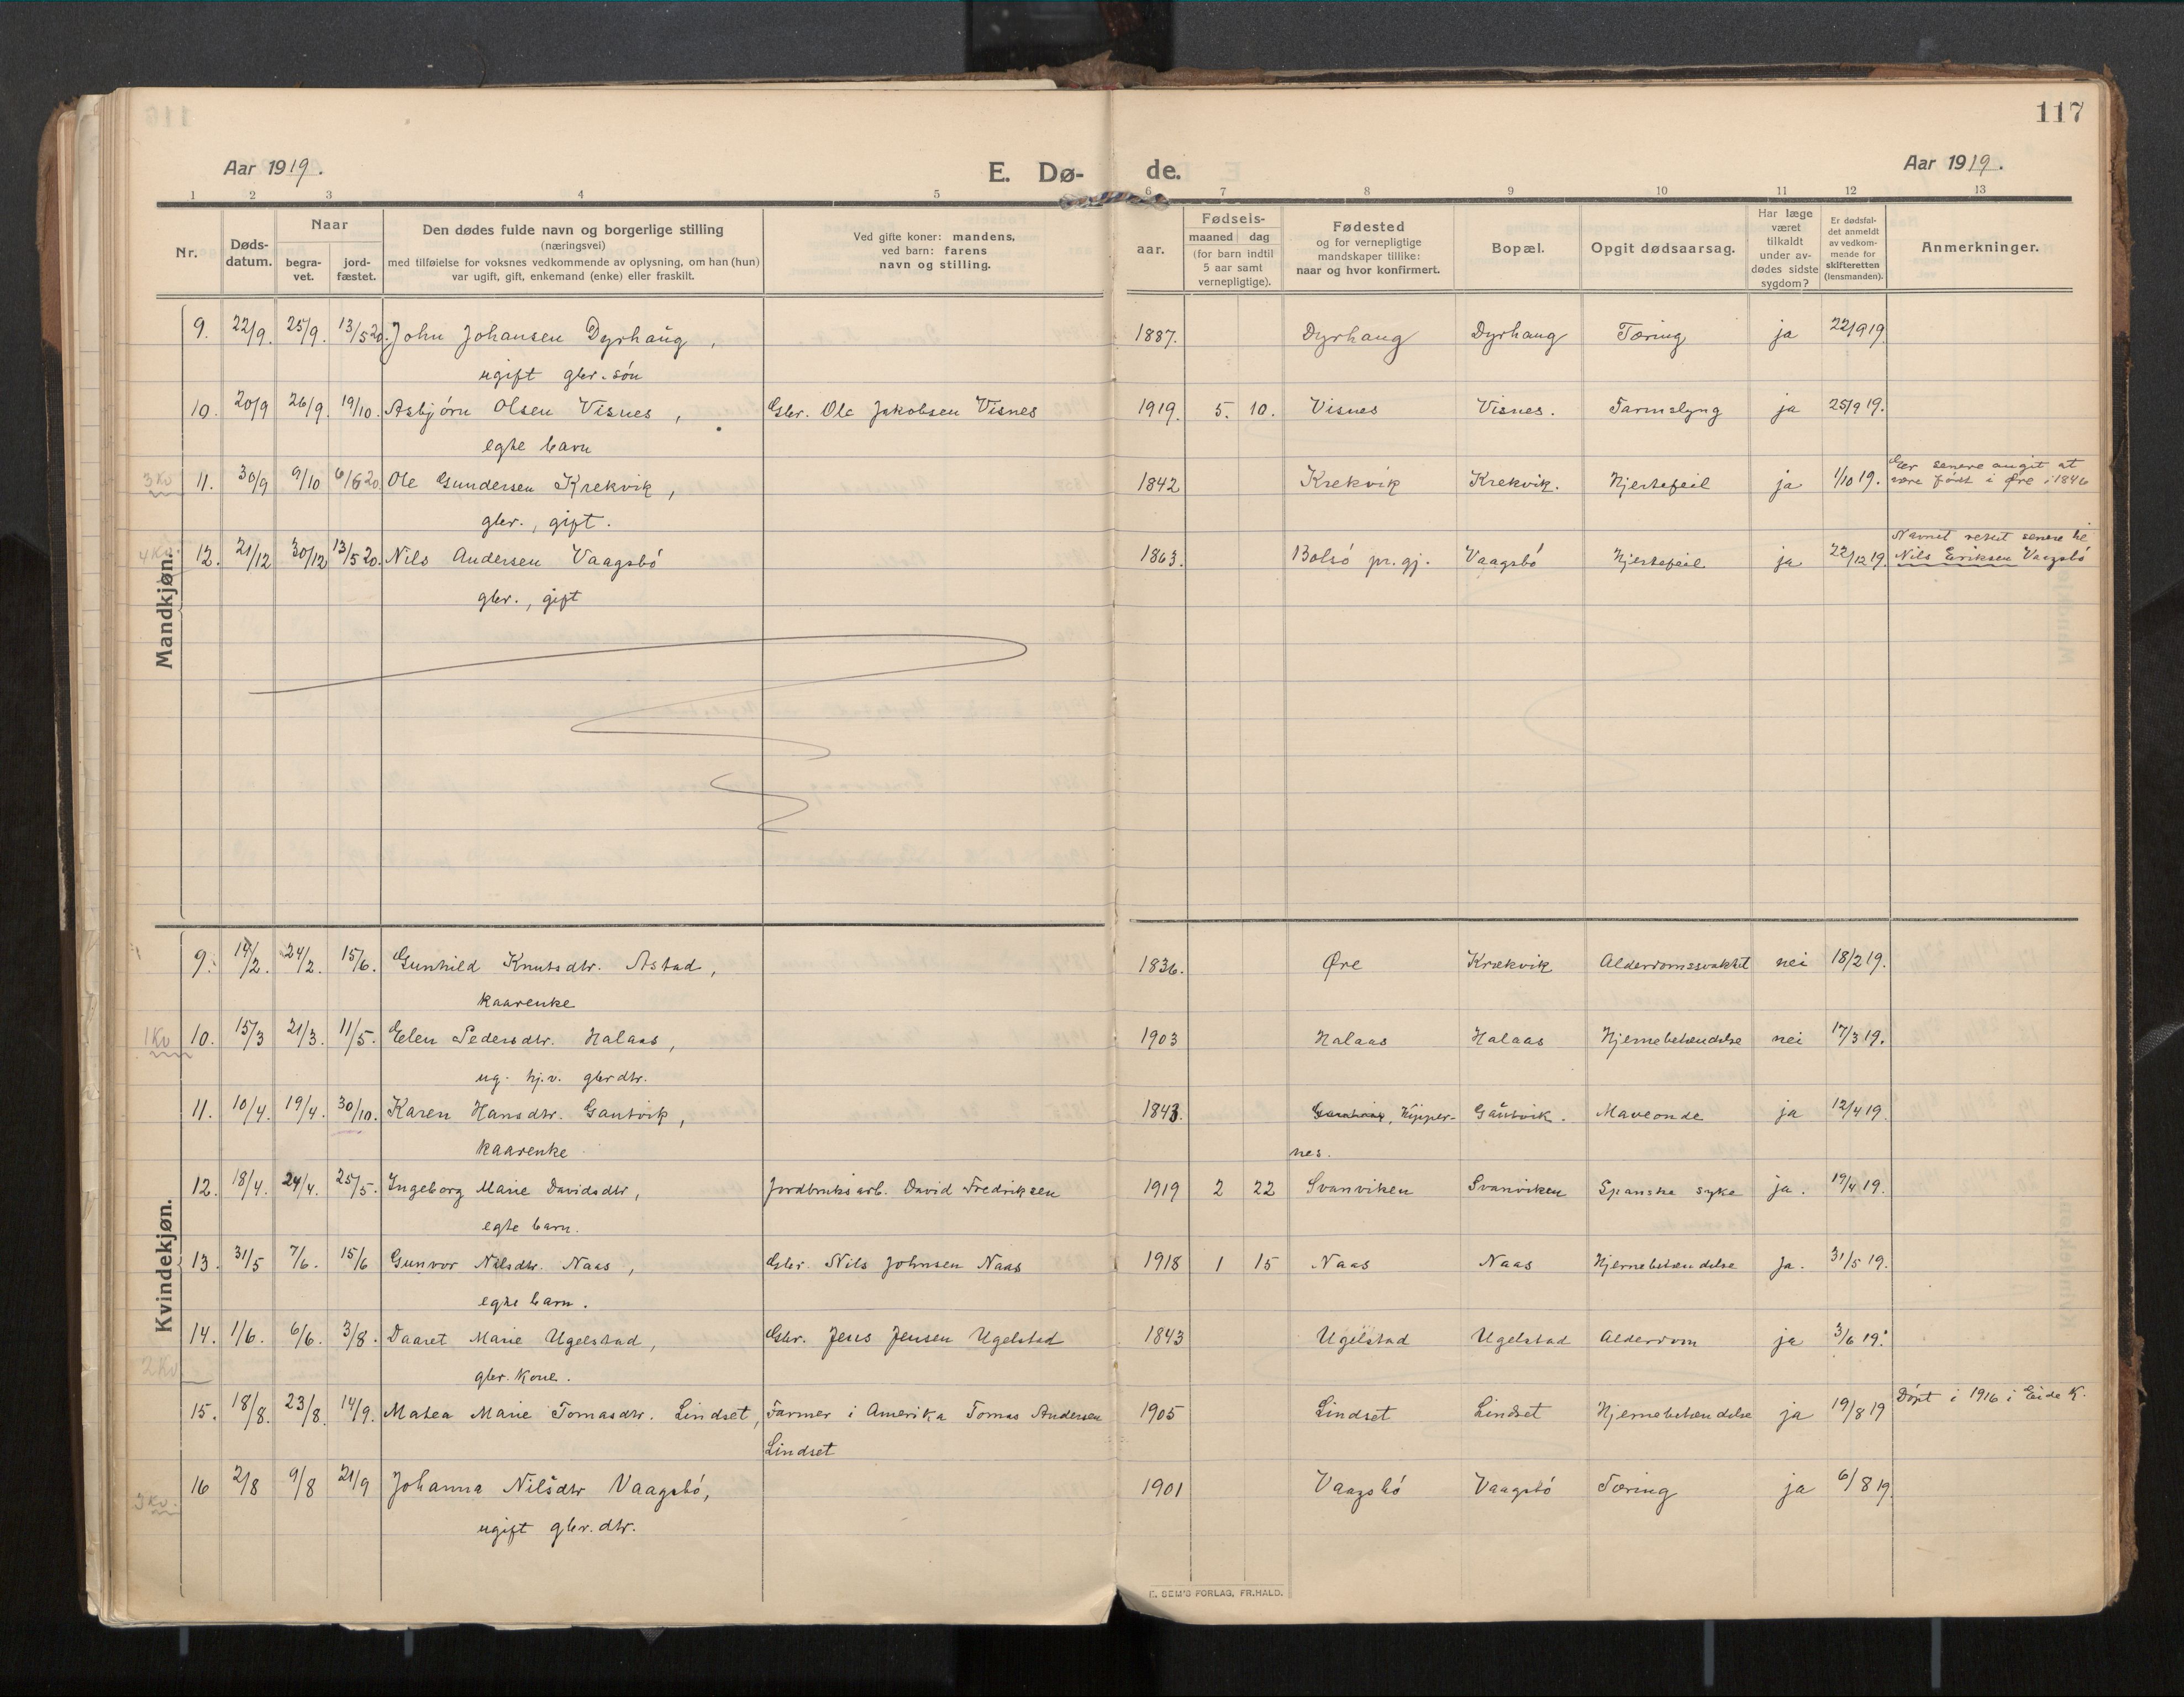 117
Aar 1919.
E. Dø-
de.
Aar 1919.
1 2 3 4 5 6 7 8 9 10 11 12 13
Nr.
Døds-
datum.
Naar
begra-
vet.
jord-
fæstet.
Den dødes fulde navn og borgerlige stilling
(næringsvei)
med tilføielse for voksnes vedkommende av oplysning, om han (hun)
var ugift, gift, enkemand (enke) eller fraskilt.
Ved gifte koner: mandens,
ved barn: farens
navn og stilling.
Fødsels-
aar.
maaned dag
(for barn indtil
5 aar samt
vernepligtige).
Fødested
og for vernepligtige
mandskaper tillike:
naar og hvor konfirmert.
Bopæl.
Opgit dødsaarsag.
Har læge
været
tilkaldt
under av-
dødes sidste
sygdom?
Er dødsfal-
det anmeldt
av vedkom-
mende for
skifteretten
(lensmanden).
Anmerkninger.
Mandkjøn.
9. 22/9. 25/9. 13/5 20. John Johansen Dyrhaug, 1887. Dyrhaug Dyrhaug Tæring ja 22/9 19.
ugift gbr. søn
10. 20/9 26/9. 19/10. Asbjørn Olsen Visnes, Gbr. Ole Jakobsen Visnes 1919. 5. 10. Visnes Visnes. Tarmslyng ja 25/9 19.
egte barn
3 Kv 11. 30/9 9/10 6/6 20. Ole Gundersen Krekvik, 1842 Krekvik Krekvik. Hjertefeil ja 1/10 19. Er senere angit at
være født i Øre i 1846
gbr., gift.
4 Kv. 12. 21/12 30/12 13/5 20. Nils Andersen Vaagsbó 1863. Bolsó pr.gj. Vaagsbó Hjertefeil ja 22/12 19. Navnet rettet senere til
Nils Eriksen Vaagsbó
gbr., gift
Kvindekjøn.
9. 14/2. 24/2. 15/6. Gunhild Knutsdtr. Astad, 1836. Øre Krekvik Alderdomssvakhet nei 18/2 19.
kaarenke
1 Kv 10. 15/3 21/3. 11/5. Elen Pedersdtr. Halaas, 1903 Halaas Halaas Hjernebetændelse nei 17/3 19.
ug. hj.v. gbrdtr.
11. 10/4. 19/4. 30/10. Karen Hansdtr. Gautvik, 1843. Kipper- Gautvik. Maveonde ja 12/4 19.
kaarenke nes.
12. 18/4. 24/4. 25/5. Ingeborg Marie Davidsdtr, Jordbruksarb. David Fredriksen 1919 2 22 Svanviken Svanviken Spanske syke ja. 19/4 19.
egte barn.
13. 31/5 7/6. 15/6 Gunvor Nilsdtr. Naas, Gbr. Nils Johnsen Naas 1918 1 15 Naas Naas Hjernebetændelse Ja. 31/5 19.
egte barn.
14. 1/6. 6/6. 3/8. Daaret Marie Ugelstad, Gbr. Jens Jensen Ugelstad 1843 Ugelstad Ugelstad Alderdom ja 3/6 19.
2 Kv gbr. kone.
15. 18/8. 23/8. 14/9. Matea Marie Tomasdtr. Lindset, Farmer i Amerika Tomas Andersen 1905 Lindset Lindset Hjernebetændelse ja 19/8 19 Døpt i 1916 i Eide K.
Lindset
16 2/8 9/8 21/9 Johanna Nilsdtr Vaagsbó, 1901 Vaagsbó Vaagsbó Tæring ja 6/8 19
3 Kv. ugift gbr. dtr.
E. SEM'S FORLAG, FR.HALD.